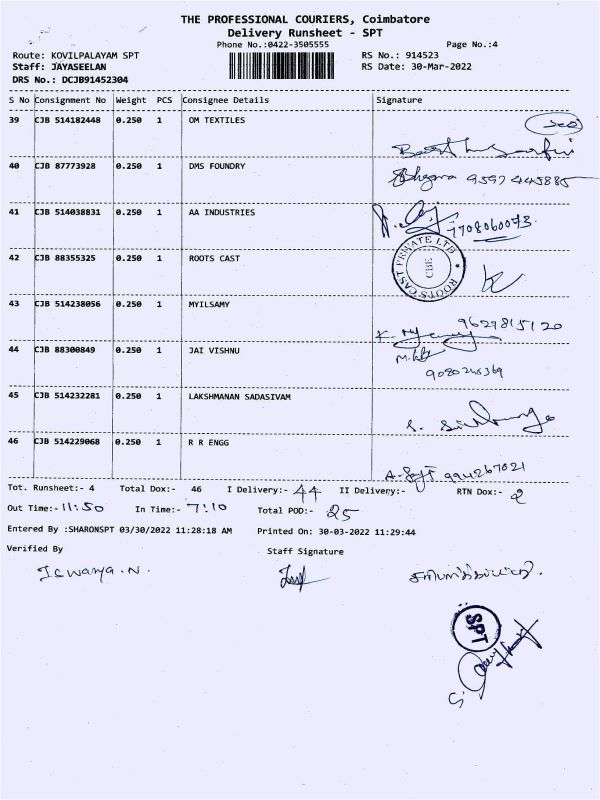 THE PROFESSIONAL COURIERS, Coimbatore
Delivery Runsheet - SPT
Phone No.:0422-3505555
Page No.:4
Route: KOVILPALAYAM SPT
RS No.: 914523
Staff: JAYASEELAN
RS Date: 30-Mar-2022
DRS No.: DCJB91452304
S No Consignment No Weight PCS Consignee Details Signature
39 CJB 514182448 0.250 1 OM TEXTILES
40 CJB 87773928 0.250 1 DMS FOUNDRY
41 CJB 514038831 0.250 1 AA INDUSTRIES 7708060073
42 CJB 88355325 0.250 1 ROOTS CAST
ROOTS CAST PRIVATE LTD
CBE
43 CJB 514238056 0.250 1 MYILSAMY 9629815120
44 CJB 88300849 0.250 1 JAI VISHNU
45 CJB 514232281 0.250 1 LAKSHMANAN SADASIVAM
46 CJB 514229068 0.250 1 R R ENGG
Tot. Runsheet:- 4 Total Dox:- 46 I Delivery:- 44 II Delivery:- RTN Dox:- 2
Out Time:- 11:50 In Time:- 7:10 Total POD:- 25
Entered By :SHARONSPT 03/30/2022 11:28:18 AM Printed On: 30-03-2022 11:29:44
Verified By Staff Signature
Iswarya.N.
SPT